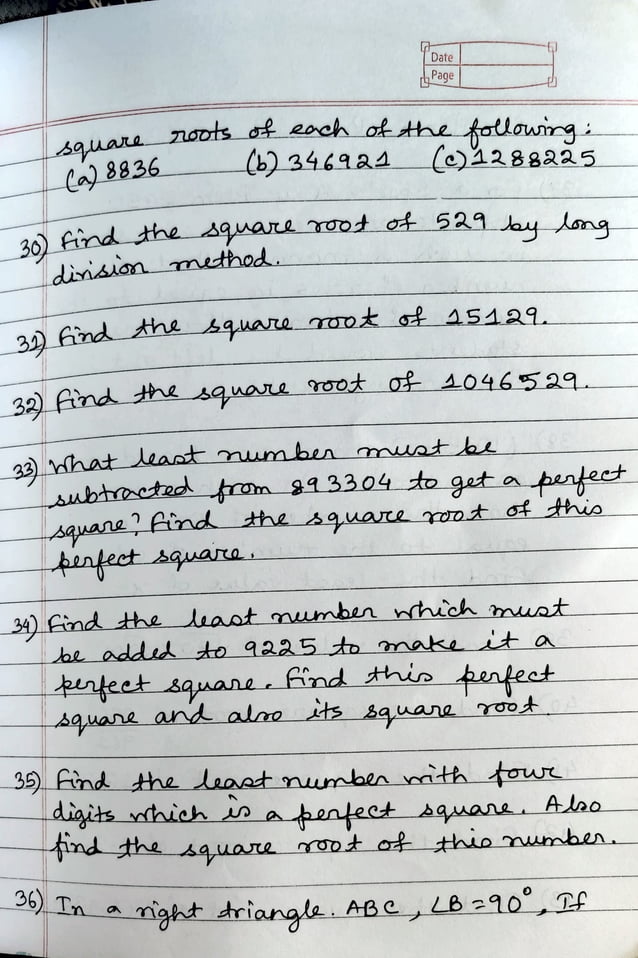 Date
Page
square roots of each of the following:
(a) 8836 (b) 346921 (c) 1288225
30) Find the square root of 529 by long
division method.
31) Find the square root of 15129.
32) Find the square root of 1046529.
33) What least number must be
subtracted from 893304 to get a perfect
square? Find the square root of this
perfect square.
34) Find the least number which must
be added to 9225 to make it a
perfect square. Find this perfect
square and also its square root
35) Find the least number with four
digits which is a perfect square. Also
find the square root of this number.
36) In a right triangle. ABC, ∠B=90°, If